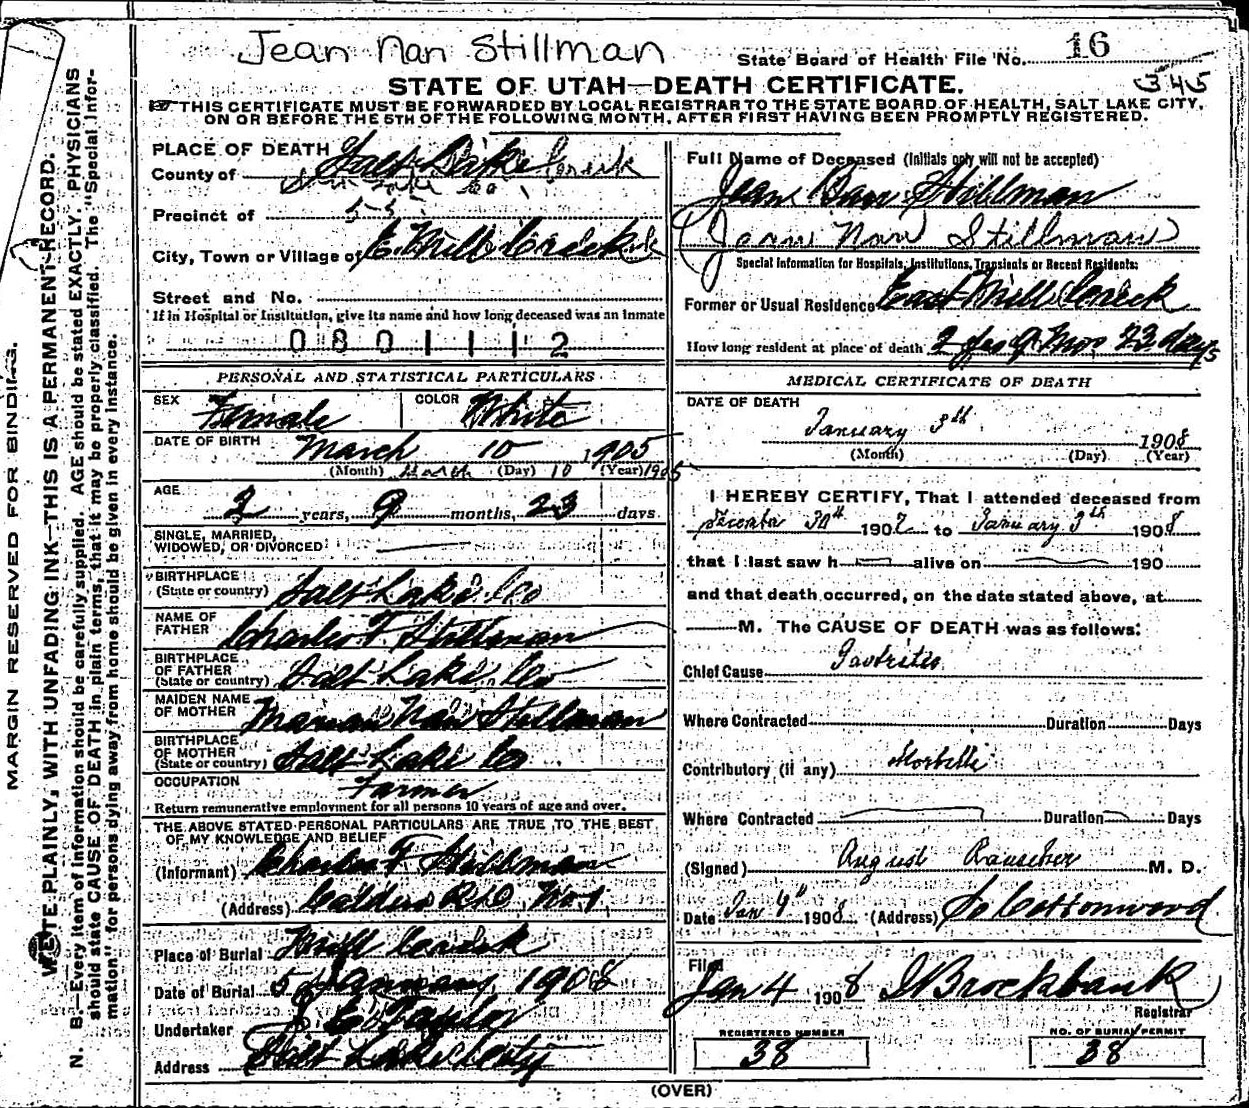 Jean Nan Stillman
State Board of Health File No. 16
345
STATE OF UTAH—DEATH CERTIFICATE.
THIS CERTIFICATE MUST BE FORWARDED BY LOCAL REGISTRAR TO THE STATE BOARD OF HEALTH, SALT LAKE CITY,
ON OR BEFORE THE 5TH OF THE FOLLOWING MONTH, AFTER FIRST HAVING BEEN PROMPTLY REGISTERED.
MARGIN RESERVED FOR BINDING.
WRITE PLAINLY, WITH UNFADING INK—THIS IS A PERMANENT RECORD.
N. B.—Every item of information should be carefully supplied. AGE should be stated EXACTLY. PHYSICIANS
should state CAUSE OF DEATH in plain terms, that it may be properly classified. The "Special Infor-
mation" for persons dying away from home should be given in every instance.
PLACE OF DEATH
County of Salt Lake
Salt Lake Co
Precinct of
City, Town or Village of E. Mill Creek
Street and No.
If in Hospital or Institution, give its name and how long deceased was an inmate
0801112
PERSONAL AND STATISTICAL PARTICULARS
SEX Female COLOR White
DATE OF BIRTH March 10 1905
(Month) March (Day) 10 (Year) 1905
AGE 2 years, 9 months, 23 days
SINGLE, MARRIED,
WIDOWED, OR DIVORCED
BIRTHPLACE
(State or country) Salt Lake Co
NAME OF
FATHER Charles F Stillman
BIRTHPLACE
OF FATHER
(State or country) Salt Lake Co
MAIDEN NAME
OF MOTHER Marian Nan Stillman
BIRTHPLACE
OF MOTHER
(State or country) Salt Lake Co
OCCUPATION Farmer
Return remunerative employment for all persons 10 years of age and over.
THE ABOVE STATED PERSONAL PARTICULARS ARE TRUE TO THE BEST
OF MY KNOWLEDGE AND BELIEF
(Informant) Charles F Stillman
(Address) Calders R.D. No 1
Place of Burial Mill Creek
Date of Burial 5 January 1908
Undertaker J E Taylor
Address Salt Lake City
Full Name of Deceased (Initials only will not be accepted)
Jean Nan Stillman
(Jean Nan Stillman)
Special Information for Hospitals, Institutions, Transients or Recent Residents:
Former or Usual Residence East Mill Creek
How long resident at place of death 2 yrs 9 Mos 23 days
MEDICAL CERTIFICATE OF DEATH
DATE OF DEATH
January 3th 1908
(Month) (Day) (Year)
I HEREBY CERTIFY, That I attended deceased from
December 30th 1907 to January 3th 1908
that I last saw h alive on 190
and that death occurred, on the date stated above, at
M. The CAUSE OF DEATH was as follows:
Chief Cause Gastritis
Where Contracted Duration Days
Contributory (if any) Morbilli
Where Contracted Duration Days
(Signed) August Rauscher M. D.
Date Jan 4th 1908 (Address) So Cottonwood
Filed
Jan 4 1908 I Brockbank
Registrar
REGISTERED NUMBER
38
NO. OF BURIAL PERMIT
38
(OVER)